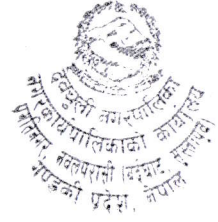 देवचुली नगरपालिका
नगरकार्यपालिकाको कार्यालय
प्रगतिनगर नवलपरासी (बर्दघाट
गण्डकी प्रदेश, नेपाल